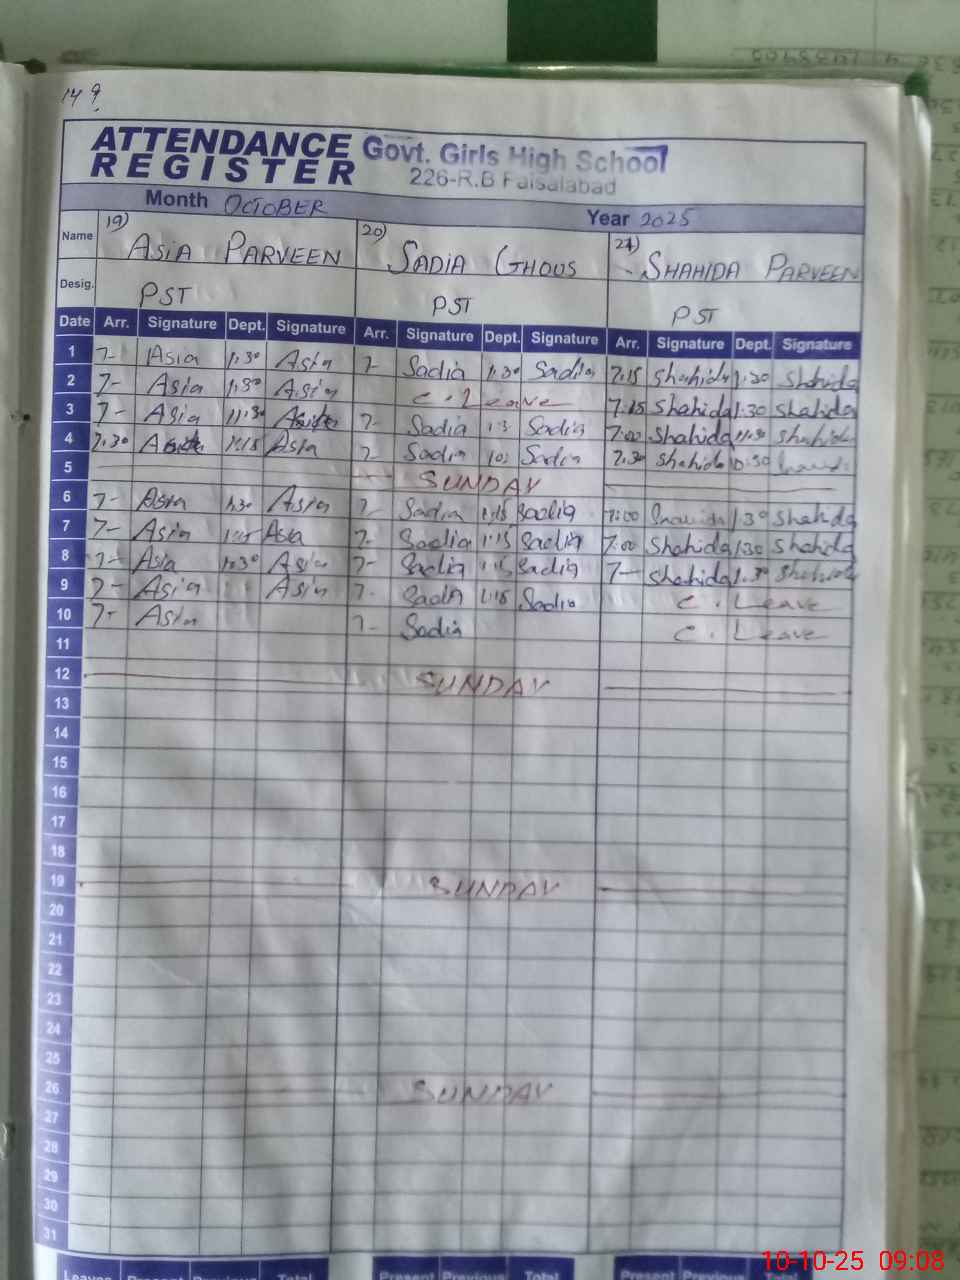 149
ATTENDANCE REGISTER Govt. Girls High School
226-R.B Faisalabad
Month OCTOBER Year 2025
Name 19) ASIA PARVEEN 20) SADIA GHOUS 21) SHAHIDA PARVEEN
Desig. PST PST PST
Date Arr. Signature Dept. Signature Arr. Signature Dept. Signature Arr. Signature Dept. Signature
1 7- Asia 1:30 Asia 7- Sadia 1:30 Sadia 7:15 Shahida 1:30 Shahida
2 7- Asia 1:30 Asia C. Leave 7:15 Shahida 1:30 Shahida
3 7- Asia 11:30 Asia 7- Sadia Sadia 7:00 Shahida 11:30 Shahida
4 7:30 Asia 1:15 Asia 7 Sadia Sadia 7:30 Shahida 10:30
5 SUNDAY
6 7- Asia 1:30 Asia 7- Sadia 1:15 Sadia 7:00 Shahida 1:30 Shahida
7 7- Asia Asia 7- Sadia 1:15 Sadia 7:00 Shahida 1:30 Shahida
8 7- Asia 1:30 Asia 7- Sadia 1:15 Sadia 7- Shahida 1:30 Shahida
9 7- Asia Asia 7- Sadia 1:15 Sadia C. Leave
10 7- Asia 7- Sadia C. Leave
11
12 SUNDAY
13
14
15
16
17
18
19 SUNDAY
20
21
22
23
24
25
26 SUNDAY
27
28
29
30
31
Leaves Present Previous Total Present Previous Total Present Previous Total
10-10-25 09:08